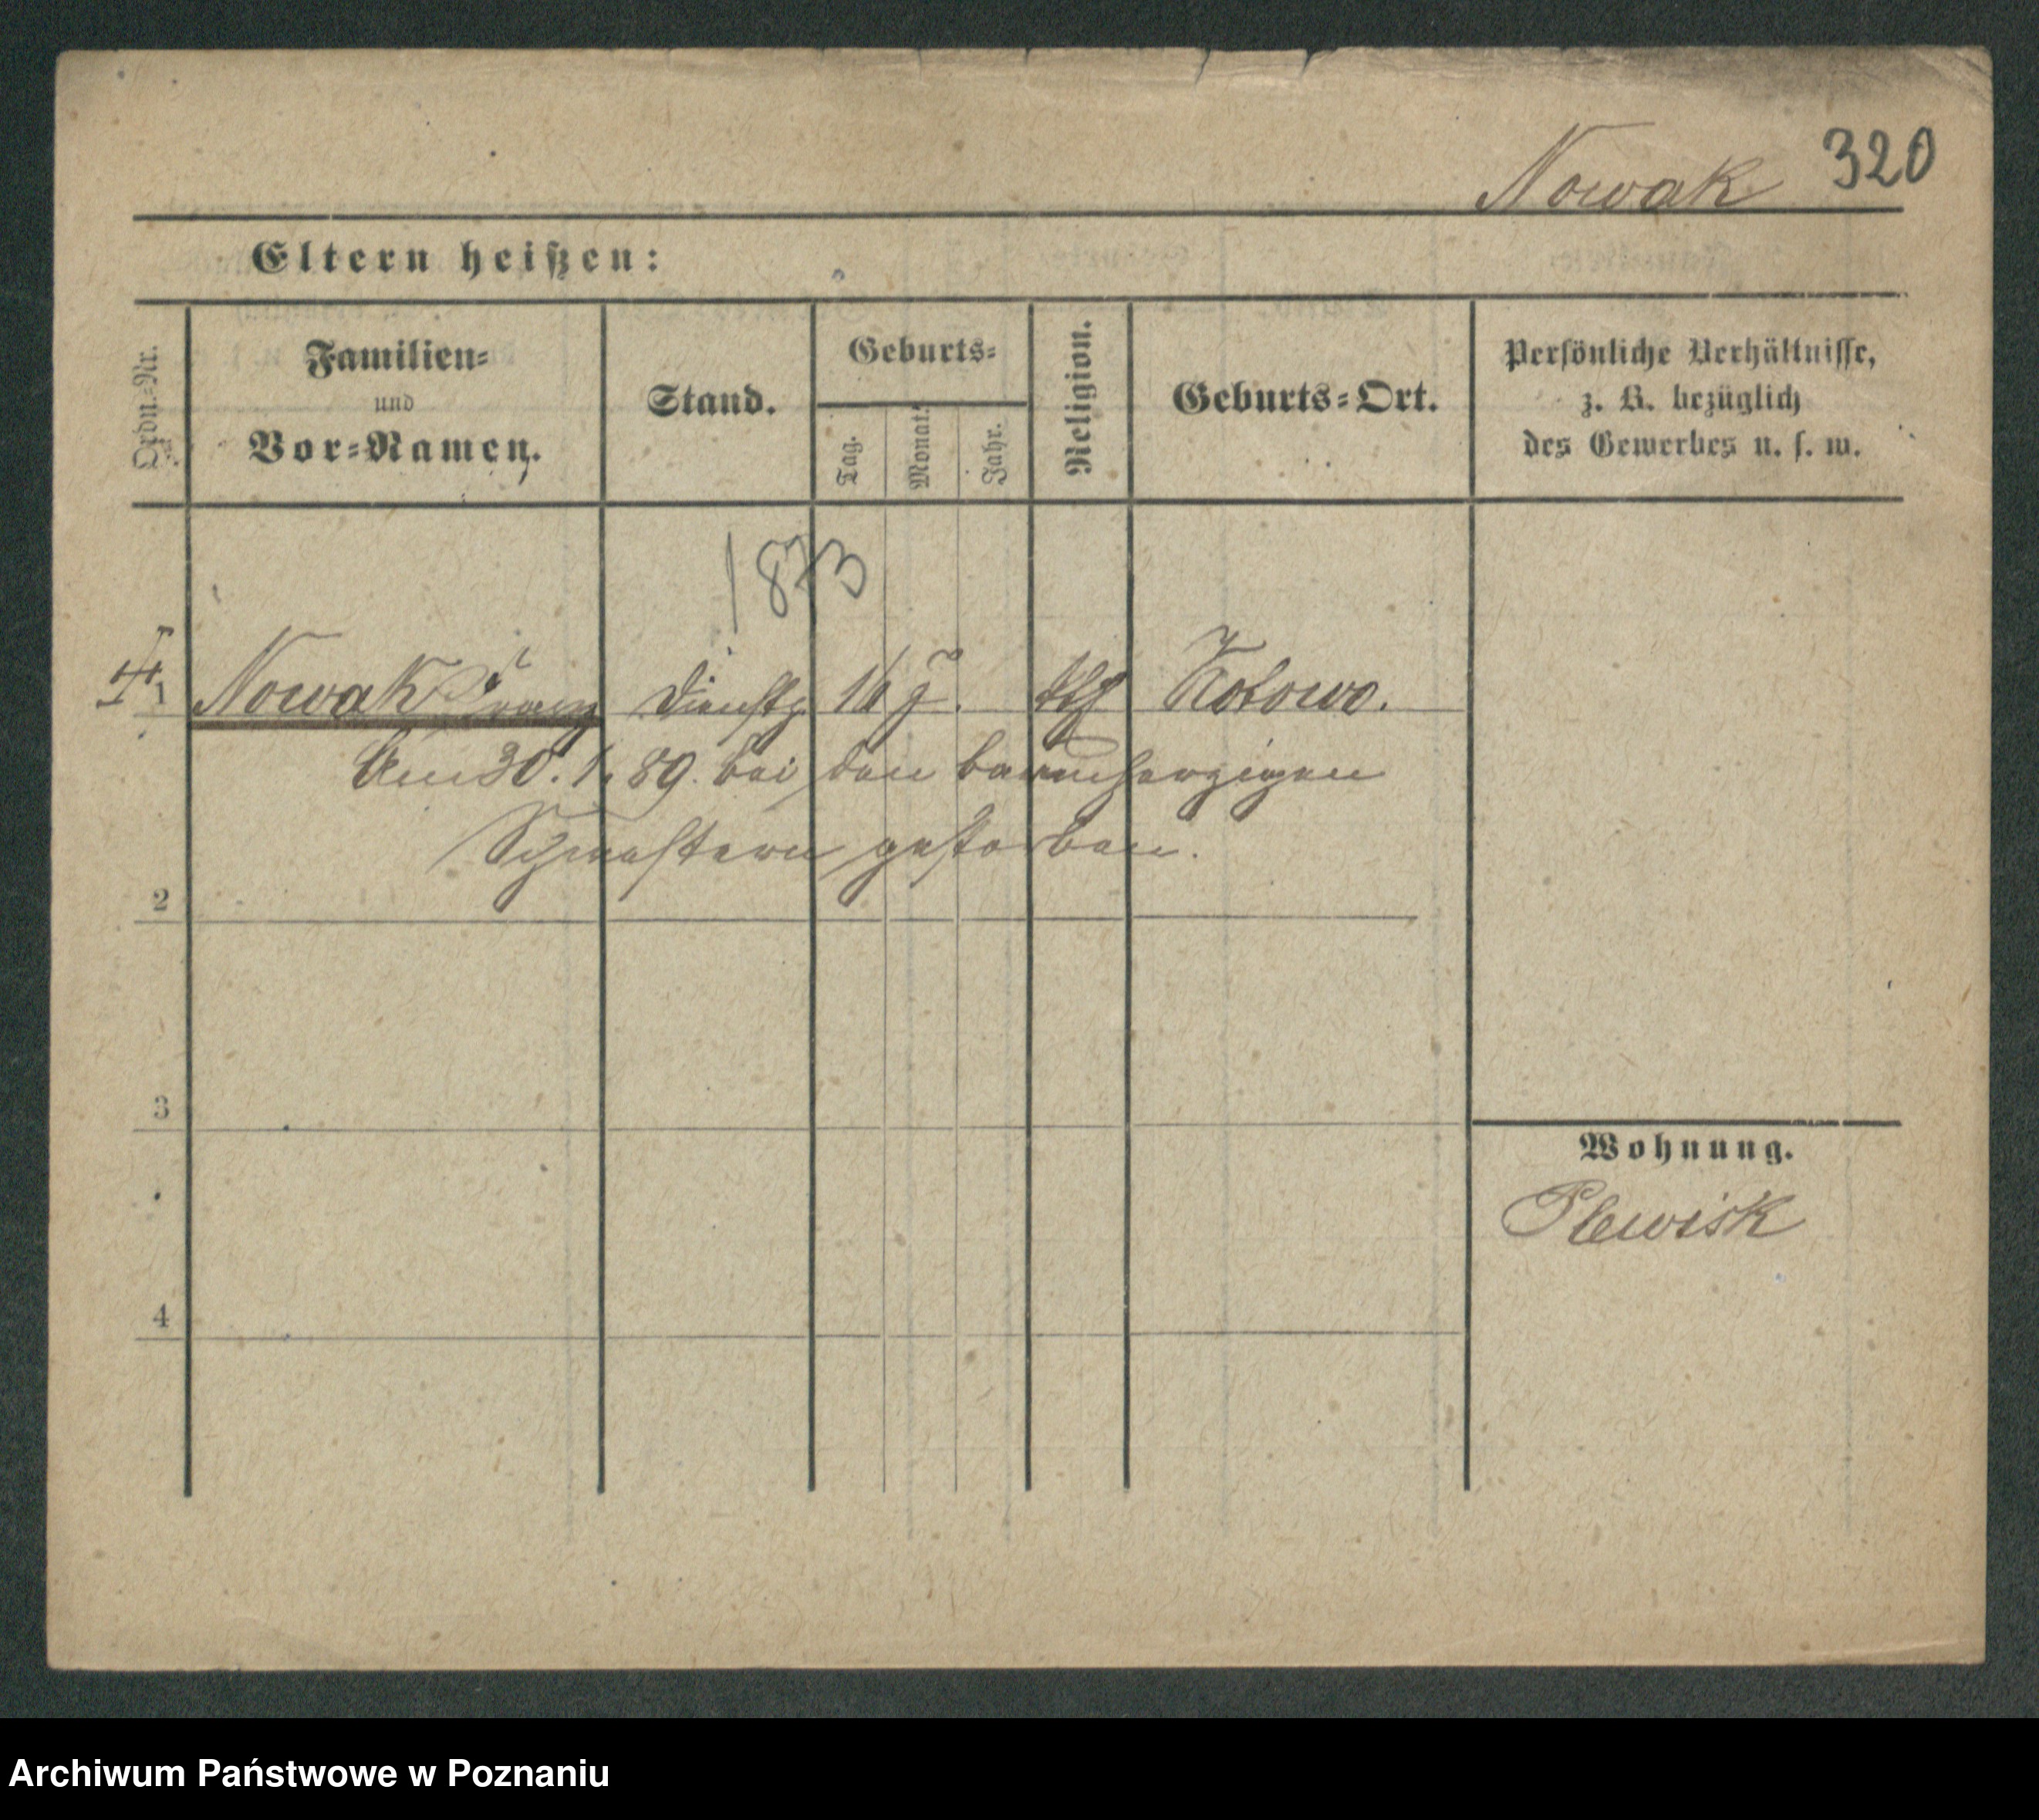 Nowak 320
Eltern heißen:
Ordn.-Nr.
Familien-
und
Vor-Namen.
Stand.
Geburts-
Tag.
Monat.
Jahr.
Religion.
Geburts-Ort.
Persönliche Verhältnisse,
z. B. bezüglich
des Gewerbes u. s. w.
1873
1 Nowak Franz Dienstj. 16 J. kth Kotowo.
Am 30. 1. 89. bei den barmherzigen
Schwestern gestorben.
2
3
Wohnung.
Plewisk
4
Archiwum Państwowe w Poznaniu